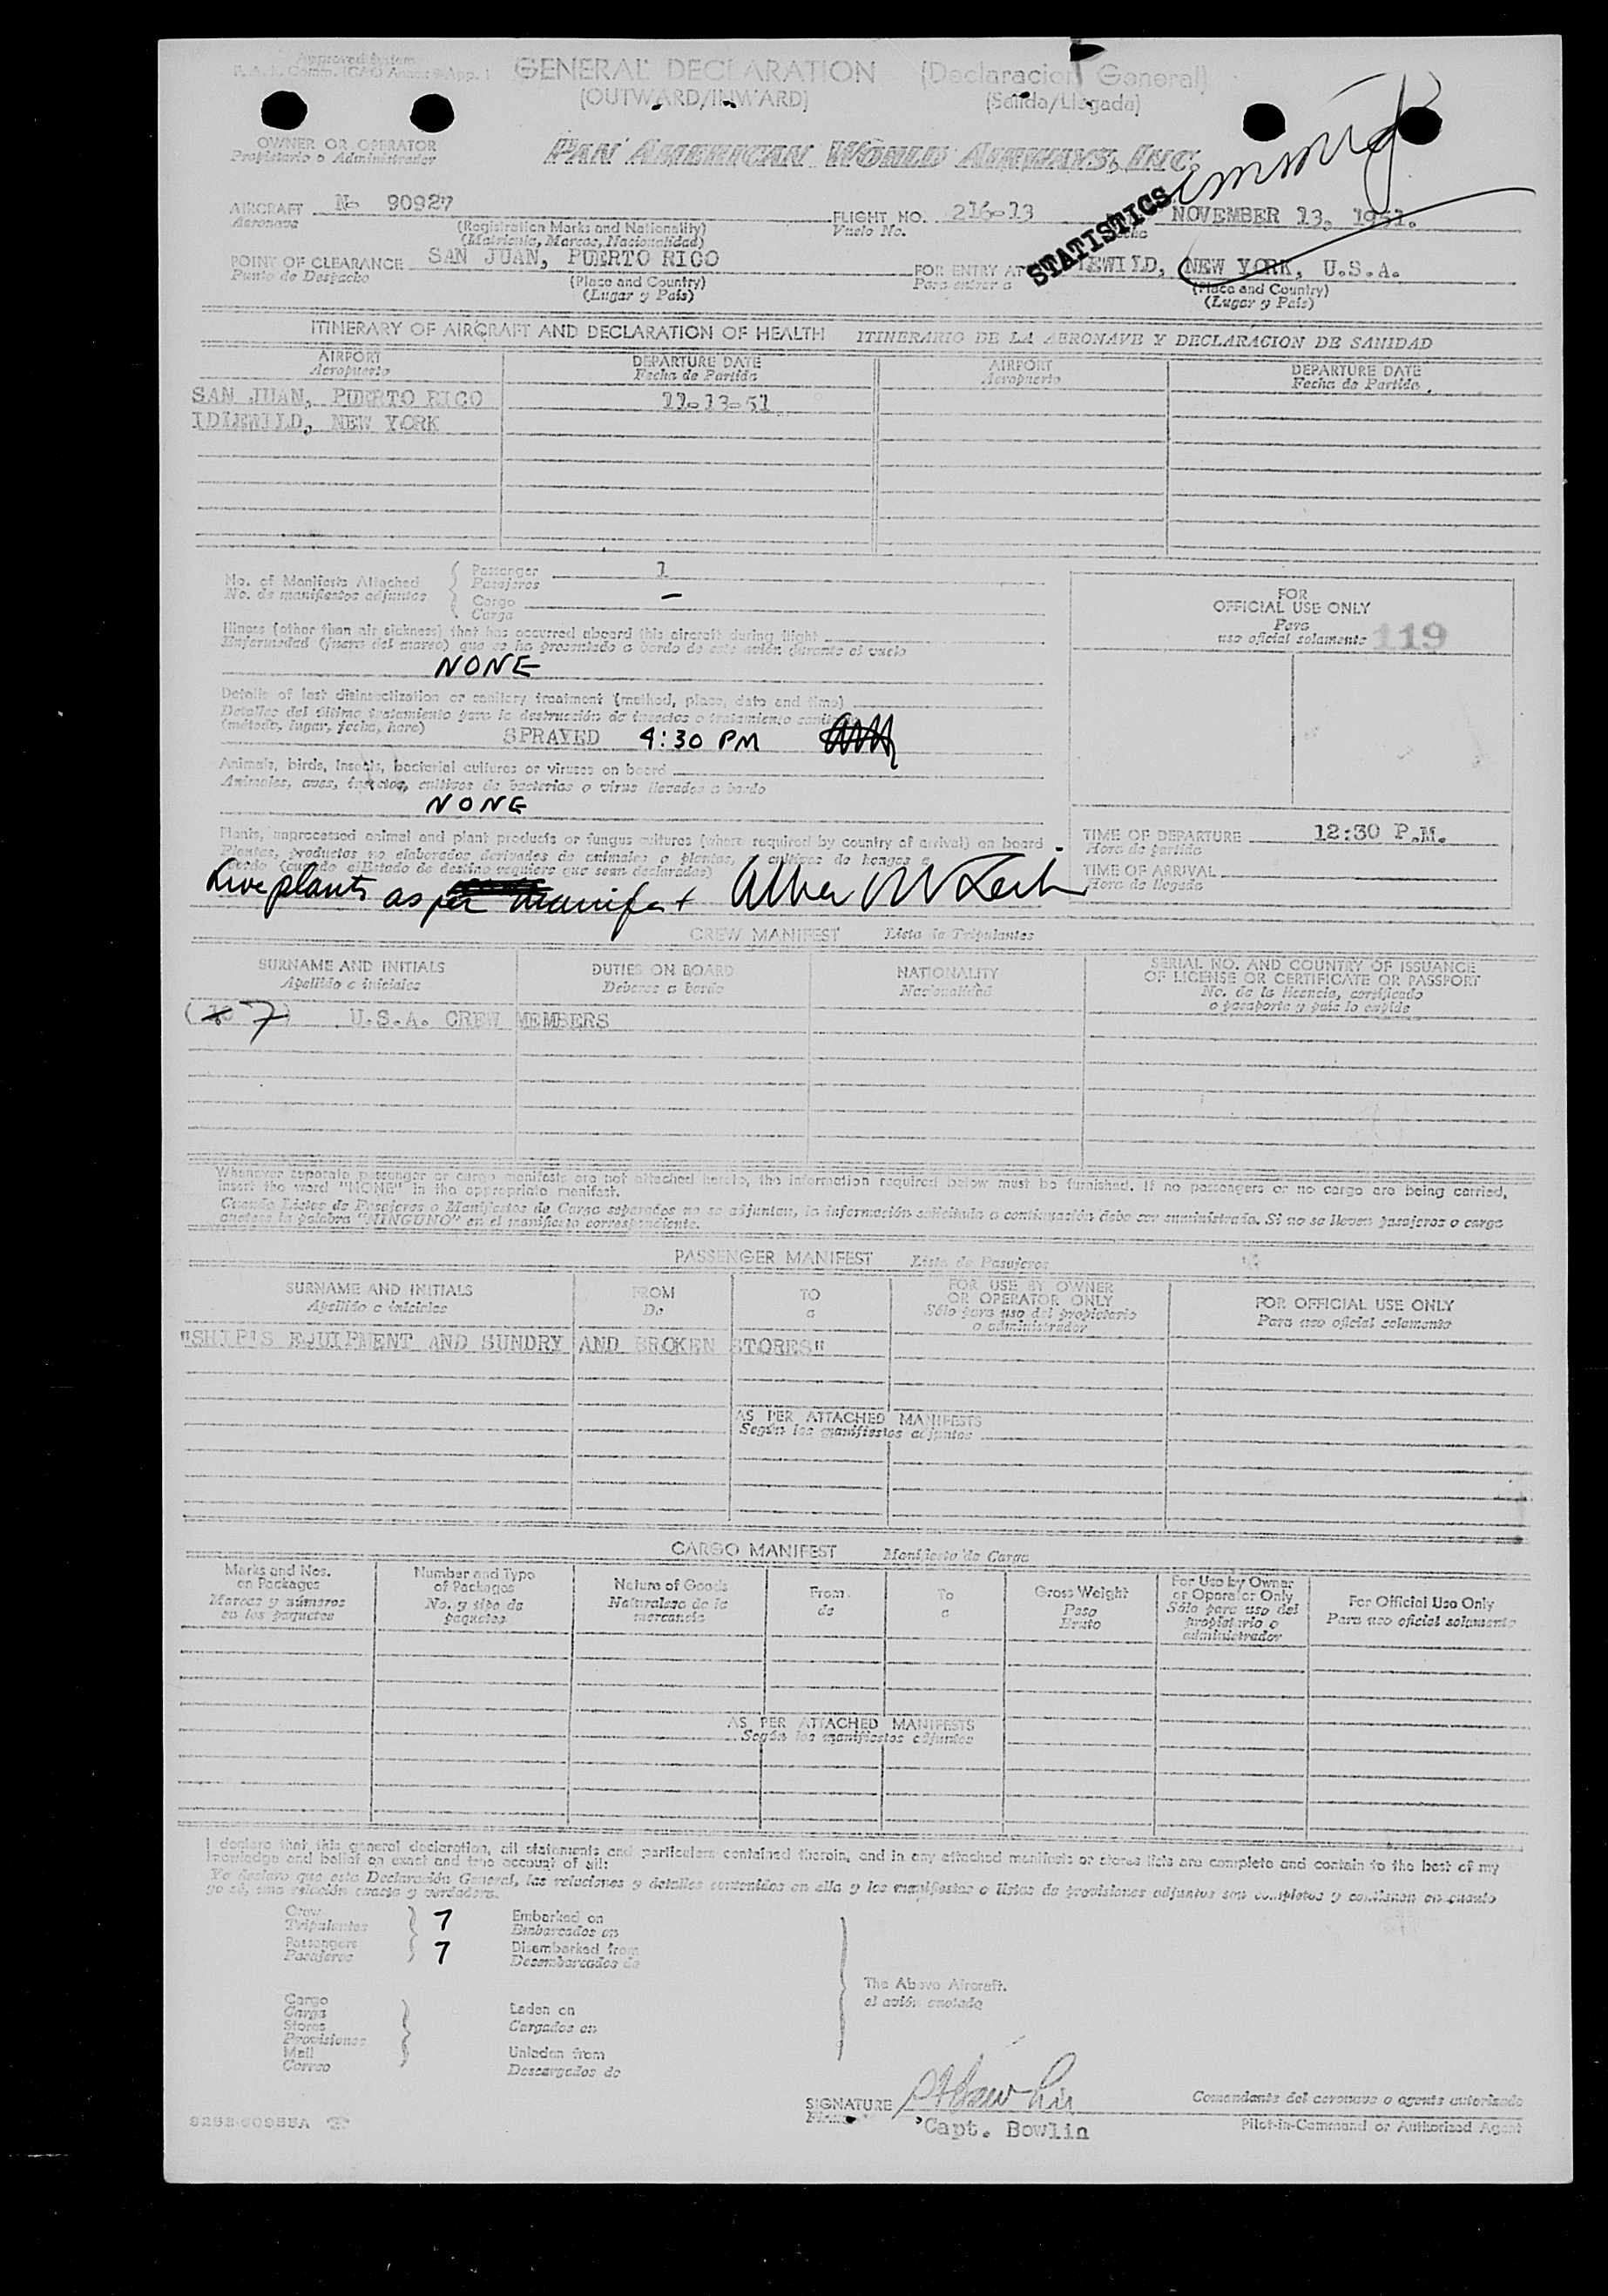 Approved System
GENERAL DECLARATION (Declaracion General)
(OUTWARD/INWARD) (Salida/Llegada)
OWNER OR OPERATOR
Propietario o Administrador
PAN AMERICAN WORLD AIRWAYS, INC.
AIRCRAFT N- 90927 FLIGHT NO. 216-13 NOVEMBER 13, 1951.
Aeronave (Registration Marks and Nationality) Vuelo No.
(Matricula, Marcas, Nacionalidad)
STATISTICS
POINT OF CLEARANCE SAN JUAN, PUERTO RICO FOR ENTRY AT EWILD, NEW YORK, U.S.A.
Punto de Despacho (Place and Country) Para entrar a (Place and Country)
(Lugar y País) (Lugar y País)
ITINERARY OF AIRCRAFT AND DECLARATION OF HEALTH ITINERARIO DE LA AERONAVE Y DECLARACION DE SANIDAD
AIRPORT DEPARTURE DATE AIRPORT DEPARTURE DATE
Aeropuerto Fecha de Partida Aeropuerto Fecha de Partida
SAN JUAN, PUERTO RICO 11-13-51
IDLEWILD, NEW YORK
No. of Manifests Attached
No. de manifiestos adjuntos
Passenger 1
Pasajeros
Cargo –
Carga
FOR
OFFICIAL USE ONLY
Para
uso oficial solamente 119
Illness (other than air sickness) that has occurred aboard this aircraft during flight
Enfermedad (fuera del mareo) que se ha presentado a bordo de este avión durante el vuelo
NONE
Details of last disinsectization or sanitary treatment (method, place, date and time)
Detalles del último tratamiento para la destrucción de insectos o tratamiento
(método, lugar, fecha, hora)
SPRAYED 4:30 PM
Animals, birds, insects, bacterial cultures or viruses on board
Animales, aves, insectos, cultivos de bacterias o virus llevados a bordo
NONE
Plants, unprocessed animal and plant products or fungus cultures (where required by country of arrival) on board
Plantas, productos no elaborados derivados de animales o plantas, o cultivos de hongos a
bordo (cuando el Estado de destino requiere que sean declarados)
Live plants as per manifest
TIME OF DEPARTURE 12:30 P.M.
Hora de partida
TIME OF ARRIVAL
Hora de llegada
CREW MANIFEST Lista de Tripulantes
SURNAME AND INITIALS DUTIES ON BOARD NATIONALITY SERIAL NO. AND COUNTRY OF ISSUANCE
OF LICENSE OR CERTIFICATE OR PASSPORT
Apellido e iniciales Deberes a bordo Nacionalidad No. de la licencia, certificado
o pasaporte y país lo expide
( 7 ) U.S.A. CREW MEMBERS
Whenever separate passenger or cargo manifests are not attached hereto, the information required below must be furnished. If no passengers or no cargo are being carried,
insert the word "NONE" in the appropriate manifest.
Cuando Listas de Pasajeros o Manifiestos de Carga separados no se adjuntan, la información solicitada a continuación debe ser suministrada. Si no se llevan pasajeros o carga
anótese la palabra "NINGUNO" en el manifiesto correspondiente.
PASSENGER MANIFEST Lista de Pasajeros
SURNAME AND INITIALS FROM TO FOR USE BY OWNER
OR OPERATOR ONLY FOR OFFICIAL USE ONLY
Apellido e iniciales De a Sólo para uso del propietario
o administrador Para uso oficial solamente
"SHIP'S EQUIPMENT AND SUNDRY AND BROKEN STORES"
AS PER ATTACHED MANIFESTS
Según los manifiestos adjuntos
CARGO MANIFEST Manifiesto de Carga
Marks and Nos.
on Packages
Marcas y números
en los paquetes
Number and Type
of Packages
No. y tipo de
paquetes
Nature of Goods
Naturaleza de la
mercancía
From
de
To
a
Gross Weight
Peso
Bruto
For Use by Owner
or Operator Only
Sólo para uso del
propietario o
administrador
For Official Use Only
Para uso oficial solamente
AS PER ATTACHED MANIFESTS
Según los manifiestos adjuntos
I declare that this general declaration, all statements and particulars contained therein, and in any attached manifests or stores lists are complete and contain to the best of my
knowledge and belief an exact and true account of all:
Yo declaro que esta Declaración General, las relaciones y detalles contenidos en ella y los manifiestos o listas de provisiones adjuntos son completos y contienen en cuanto
yo sé, una relación exacta y verdadera.
Crew 7 Embarked on
Tripulantes Embarcados en
Passengers 7 Disembarked from
Pasajeros Desembarcados de
The Above Aircraft.
el avión anotado
Cargo
Carga
Stores
Provisiones
Mail
Correo
Laden on
Cargados en
Unladen from
Descargados de
SIGNATURE
Comandante del aeronave o agente autorizado
Capt. Bowlin
Pilot-in-Command or Authorized Agent